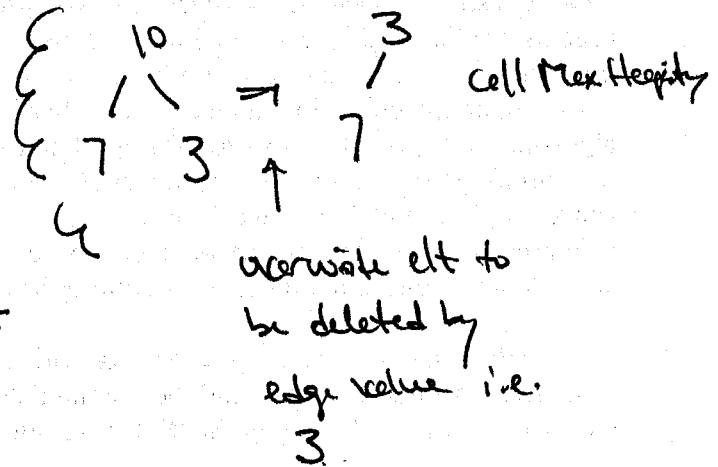 10
7 3
⇒
3
7
call Max Heapify
overwrite elt to
be deleted by
edge value i.e.
3.